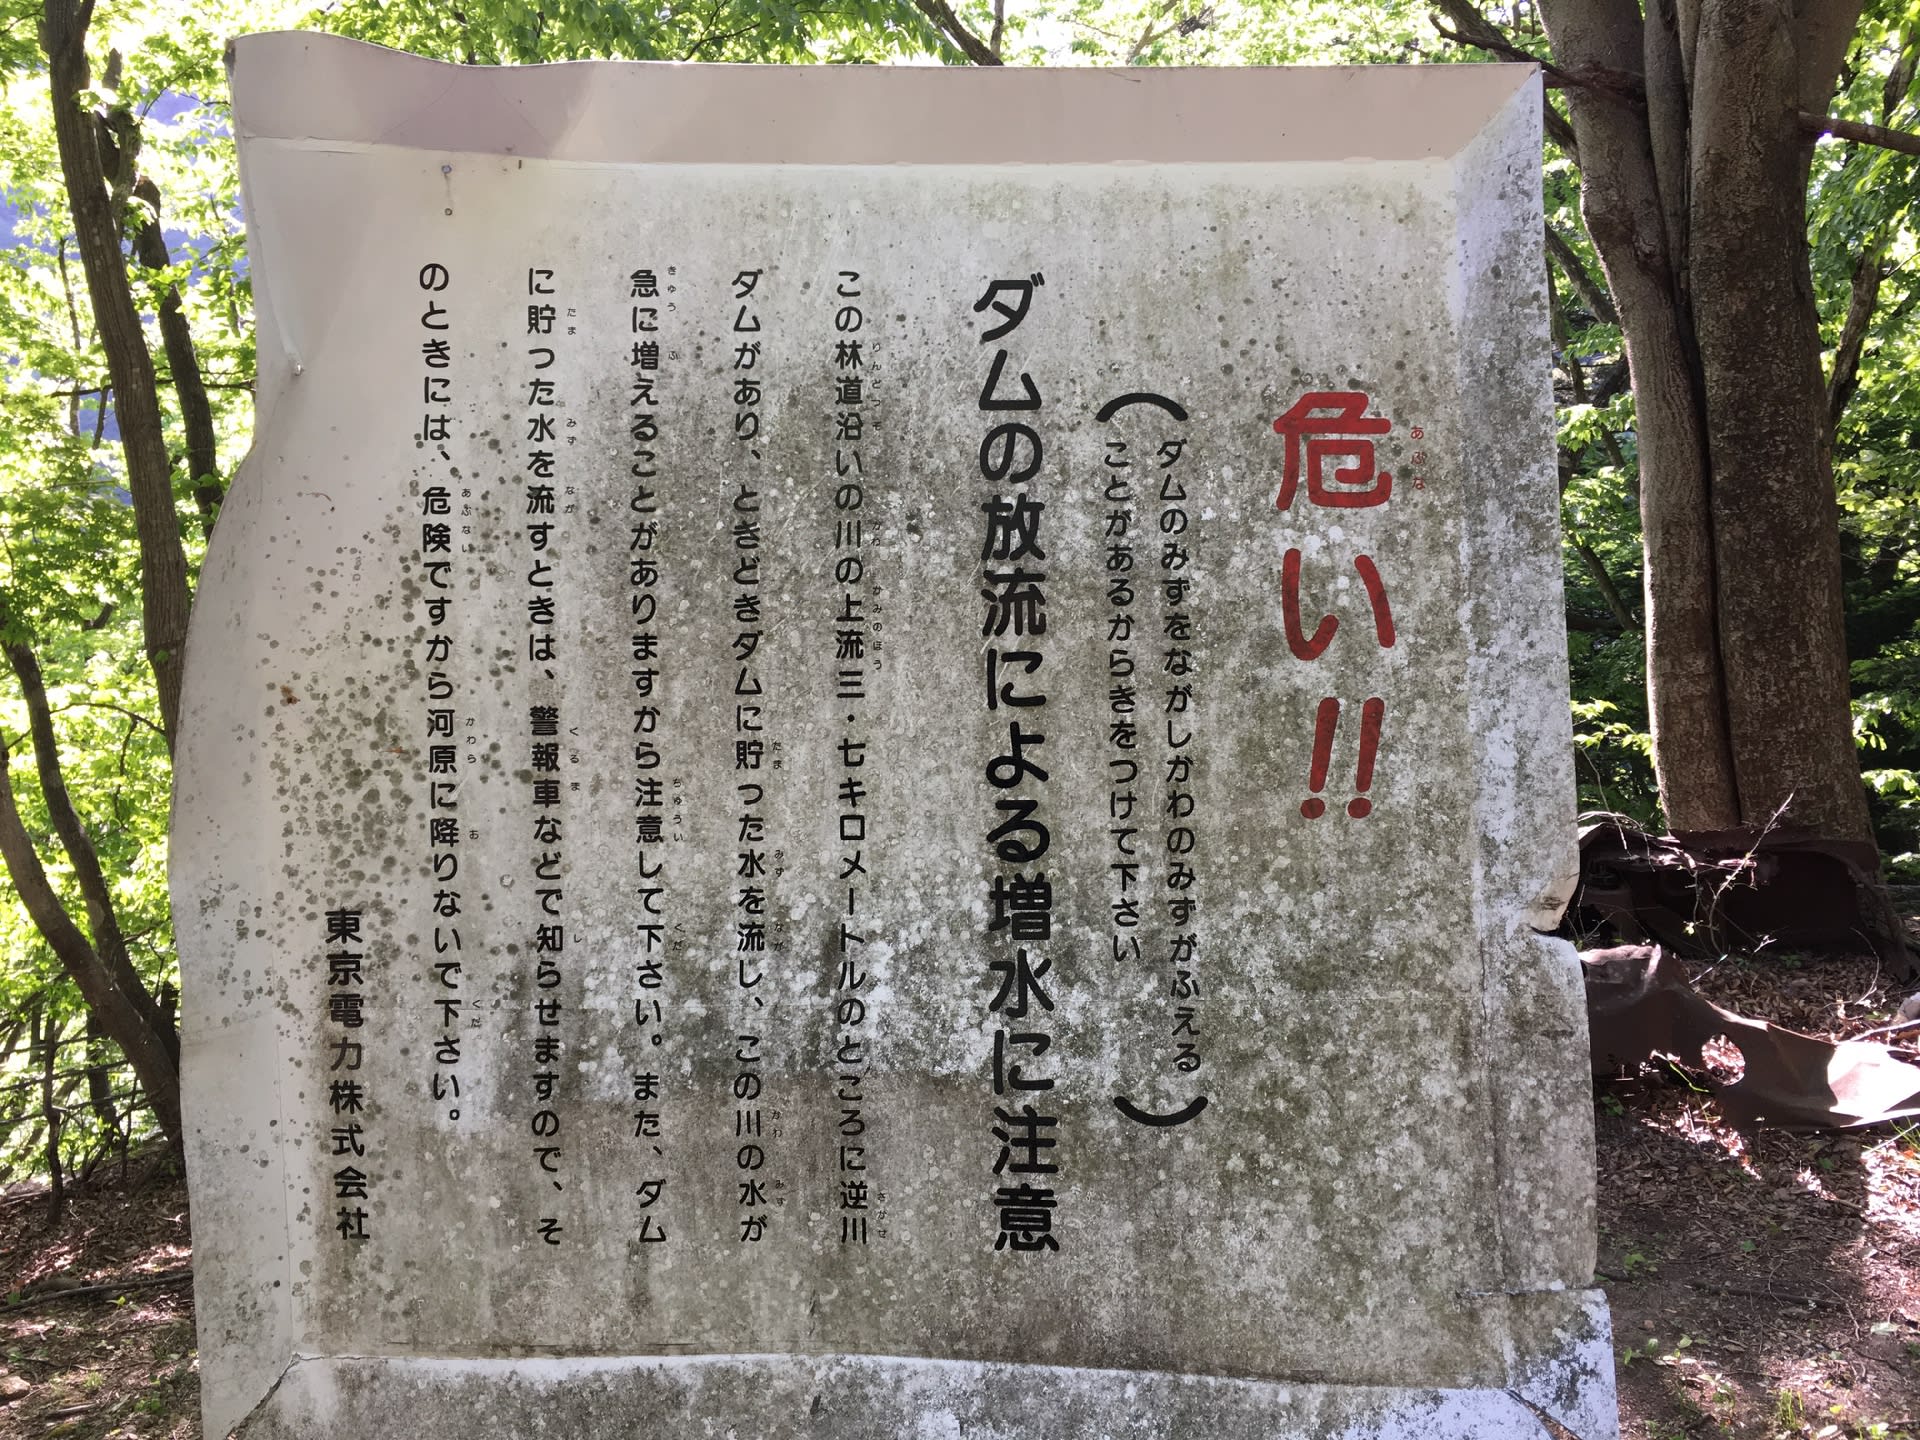 危い!!
ダムのみずをながしかわのみずがふえる
ことがあるからきをつけて下さい
ダムの放流による増水に注意
この林道沿いの川の上流三・七キロメートルのところに逆川
ダムがあり、ときどきダムに貯った水を流し、この川の水が
急に増えることがありますから注意して下さい。また、ダム
に貯った水を流すときは、警報車などで知らせますので、そ
のときには、危険ですから河原に降りないで下さい。
東京電力株式会社